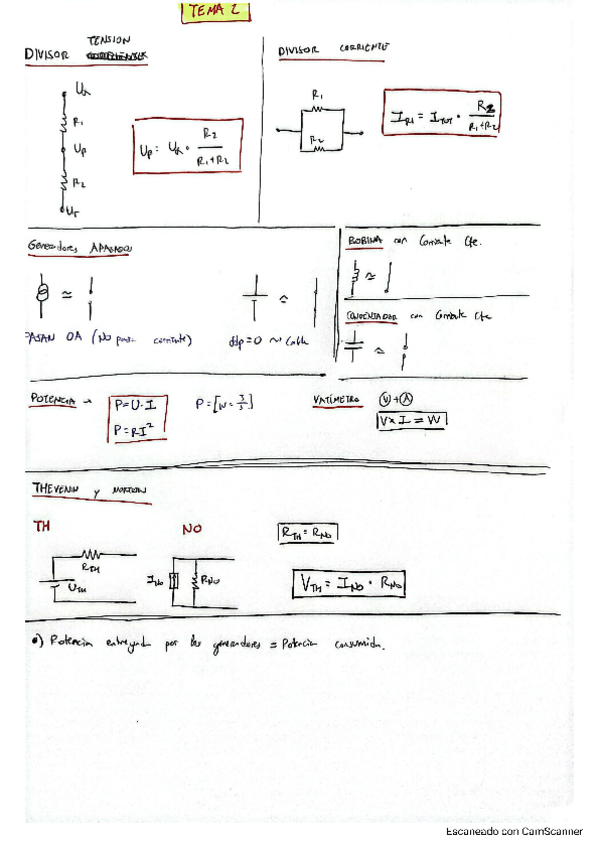 TEMA 2
DIVISOR TENSION
R1
Up
R2
Up = Uα · R2 / (R1+R2)
DIVISOR CORRIENTE
R1
R2
I_R1 = I_TOT · R2 / (R1+R2)
Generadores APAGADOS
≃
PASAN 0A (No pasa corriente)
≃
ddp=0 ~ Cable
BOBINA con Corriente Cte.
≃
CONDENSADOR con Corriente Cte
≃
POTENCIA →
P=U·I
P=RI²
P=[W = J/s]
VATÍMETRO
V + A
V×I = W
THEVENIN y NORTON
TH
NO
R_TH = R_NO
R_TH
U_TH
I_NO
R_NO
V_TH = I_NO · R_NO
•) Potencia entregada por los generadores = Potencia consumida.
Escaneado con CamScanner